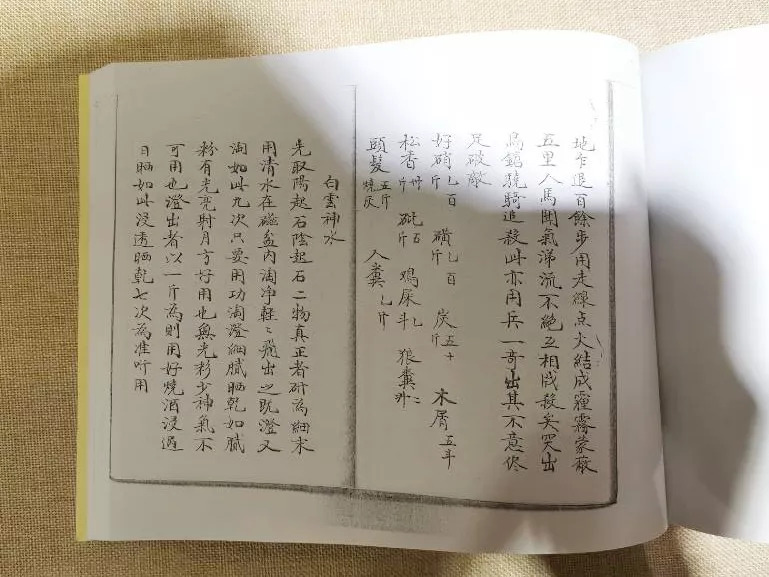 地乍退百餘步用走線点火結成霾霧蒙蔽
五里人馬聞氣涕流不絶互相成殺矣突出
馬鎗驍騎追殺此亦用兵一奇出其不意使
足破敵
好硝乚百斤 磺乚百斤 炭五十 木屑五斗
松香卅斤 砒五斤 鸡屎乚斗 狼糞二
頭髮五斤燒灰 人糞乚斤
白雲神水
先取陽起石陰起石二物真正者研為細末
用清水在磁盆内淘净輕〻飛出之既澄又
淘如此九次只要用功淘澄細膩晒乾如膩
粉有光亮射月方好用也無光彩少神氣不
可用也澄出者以一斤為則用好燒酒浸過
日晒如此浸透晒乾七次為准听用